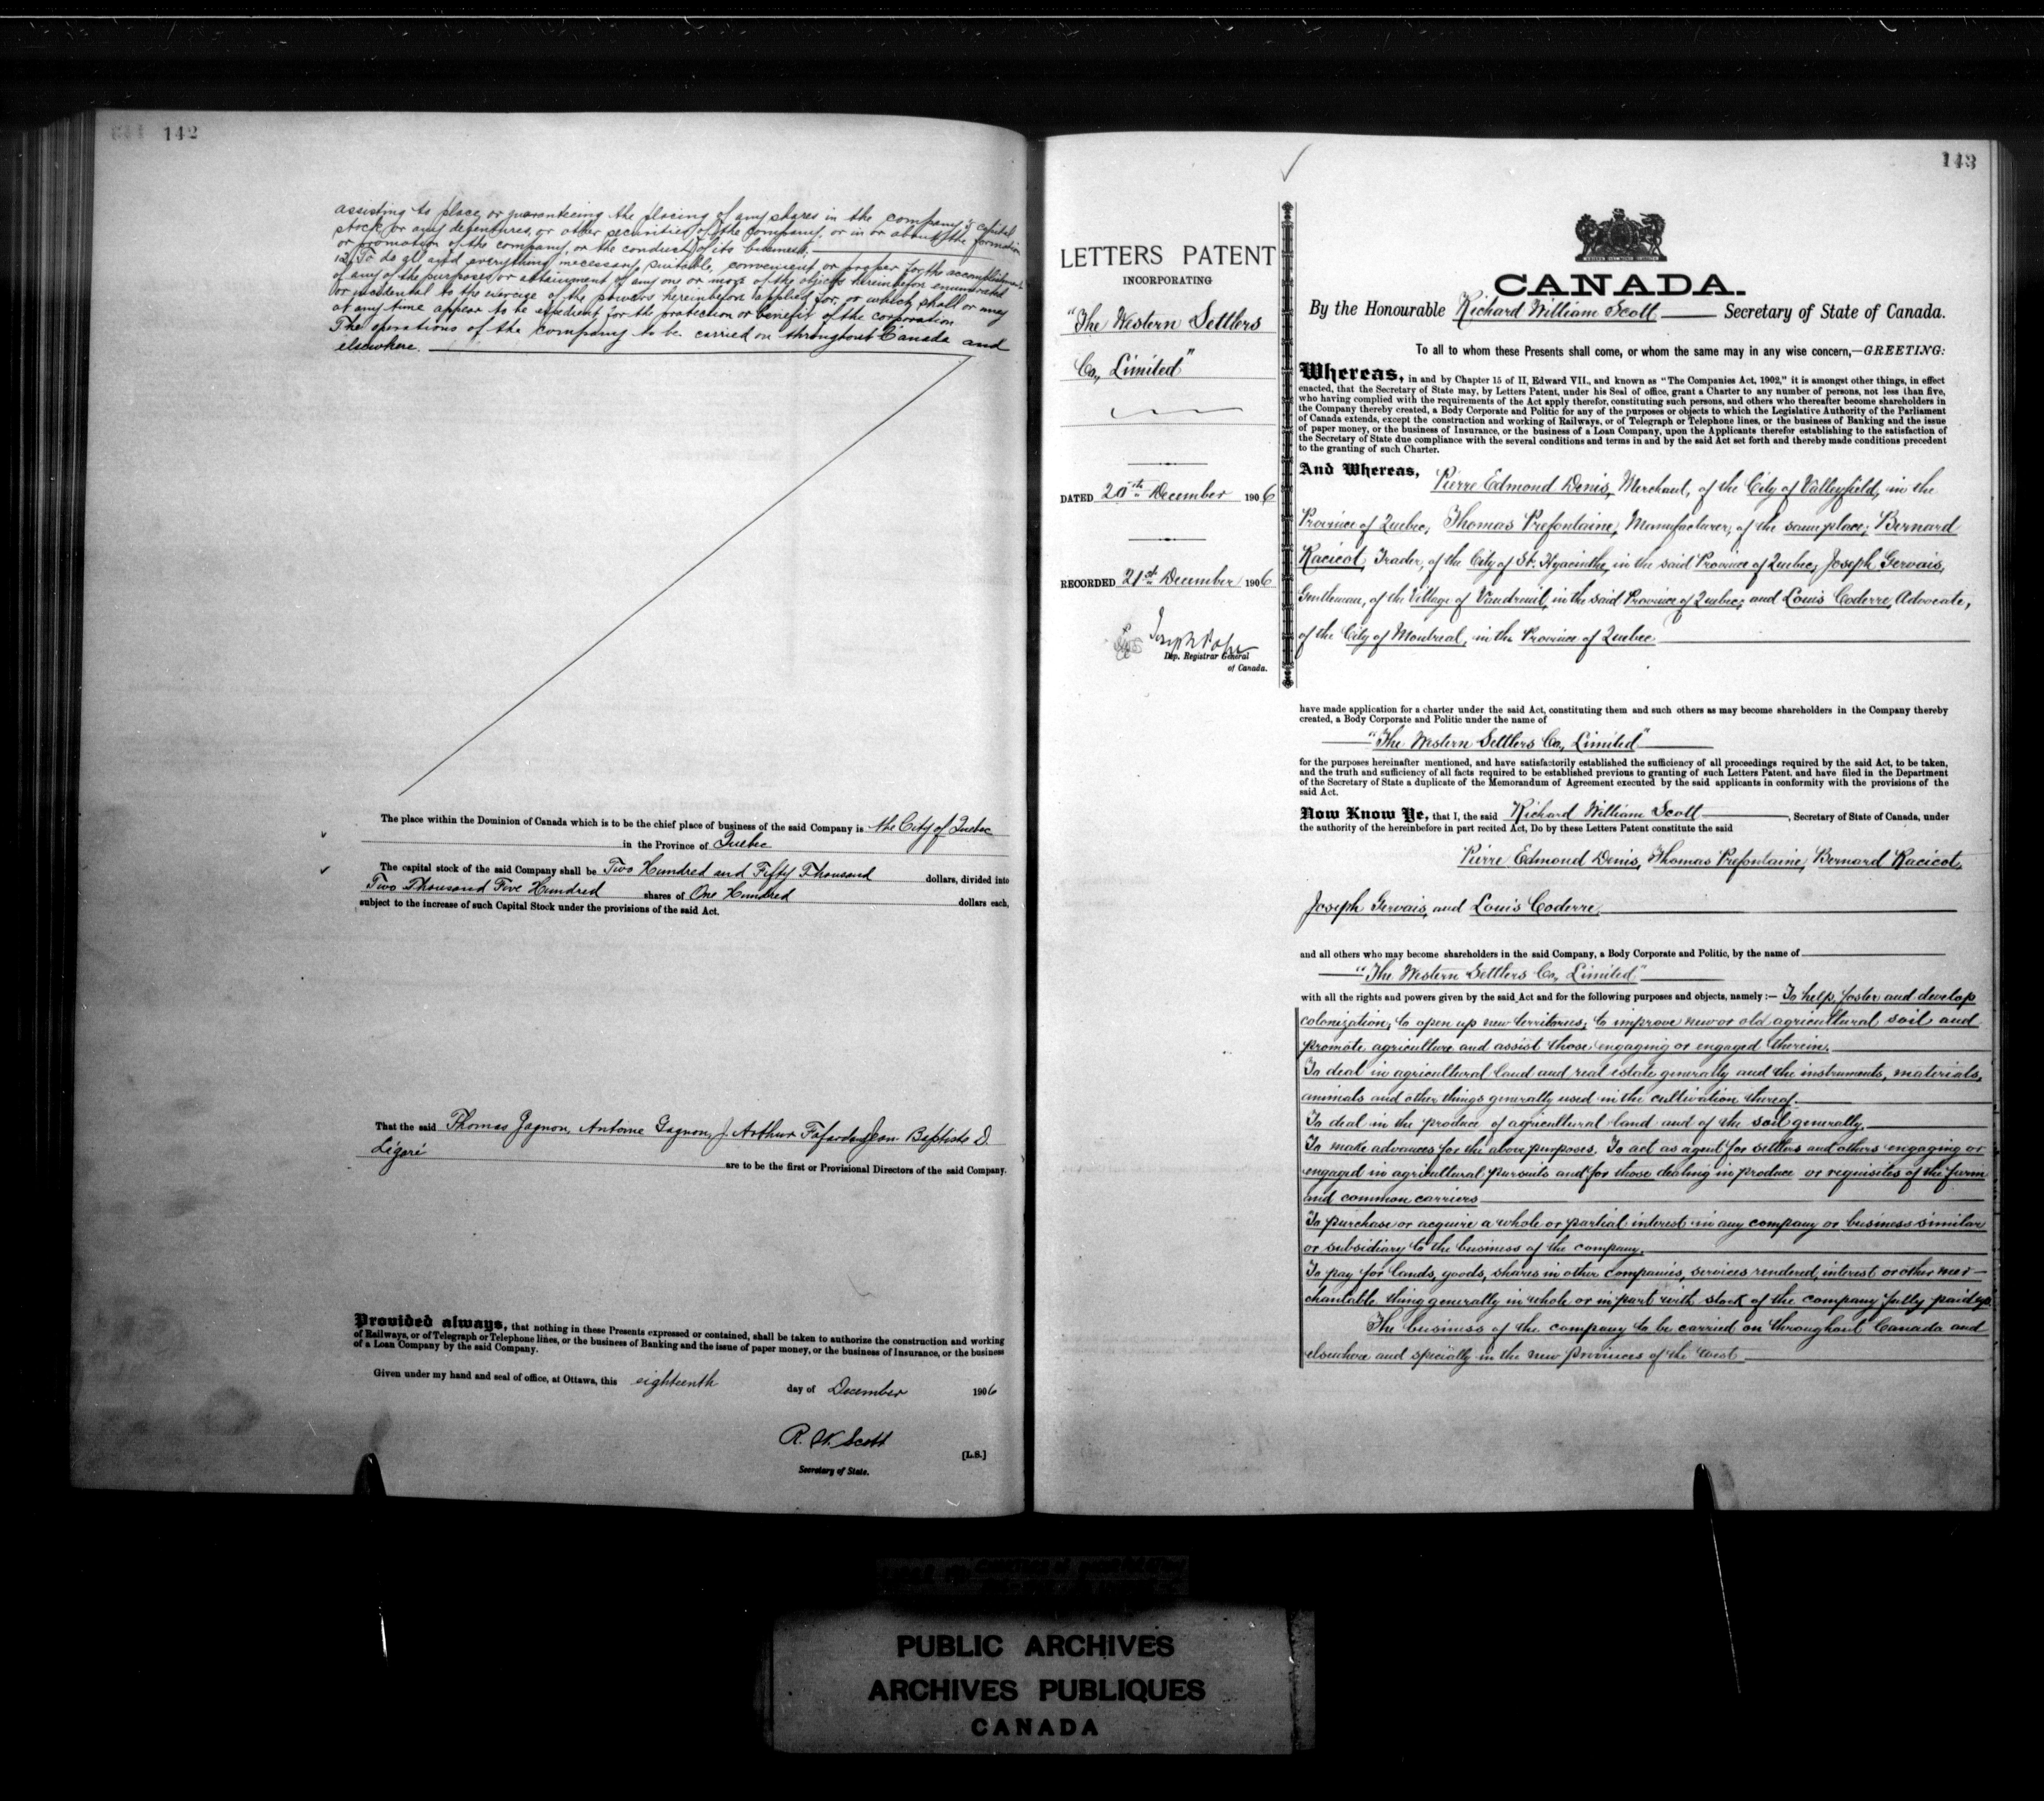 142
assisting to place, or guaranteeing the placing of any shares in the company's capital
stock, or any debentures, or other securities of the company, or in or about the formation
or promotion of the company, or the conduct of its business;
12. To do all and everything necessary, suitable, convenient or proper for the accomplishment
of any of the purposes or attainment of any one or more of the objects hereinbefore enumerated
or incidental to the exercise of the powers hereinbefore applied for, or which shall or may
at any time appear to be expedient for the protection or benefit of the corporation
The operations of the company to be carried on throughout Canada and
elsewhere.
The place within the Dominion of Canada which is to be the chief place of business of the said Company is the City of Quebec
in the Province of Quebec
The capital stock of the said Company shall be Two Hundred and Fifty Thousand dollars, divided into
Two Thousand Five Hundred shares of One Hundred dollars each,
subject to the increase of such Capital Stock under the provisions of the said Act.
That the said Thomas Gagnon, Antoine Gagnon, J. Arthur Jean Baptiste D.
Légaré
are to be the first or Provisional Directors of the said Company.
Provided always, that nothing in these Presents expressed or contained, shall be taken to authorize the construction and working
of Railways, or of Telegraph or Telephone lines, or the business of Banking and the issue of paper money, or the business of Insurance, or the business
of a Loan Company by the said Company.
Given under my hand and seal of office, at Ottawa, this eighteenth day of December 1906
R. W. Scott
[L.S.]
Secretary of State.
143
LETTERS PATENT
INCORPORATING
"The Western Settlers
Co., Limited"
DATED 20th December 1906
RECORDED 21st December 1906
Joseph Pope
Dep. Registrar General
of Canada.
CANADA.
By the Honourable Richard William Scott Secretary of State of Canada.
To all to whom these Presents shall come, or whom the same may in any wise concern,—GREETING:
Whereas, in and by Chapter 15 of II, Edward VII., and known as "The Companies Act, 1902," it is amongst other things, in effect
enacted, that the Secretary of State may, by Letters Patent, under his Seal of office, grant a Charter to any number of persons, not less than five,
who having complied with the requirements of the Act apply therefor, constituting such persons, and others who thereafter become shareholders in
the Company thereby created, a Body Corporate and Politic for any of the purposes or objects to which the Legislative Authority of the Parliament
of Canada extends, except the construction and working of Railways, or of Telegraph or Telephone lines, or the business of Banking and the issue
of paper money, or the business of Insurance, or the business of a Loan Company, upon the Applicants therefor establishing to the satisfaction of
the Secretary of State due compliance with the several conditions and terms in and by the said Act set forth and thereby made conditions precedent
to the granting of such Charter.
And Whereas, Pierre Edmond Denis, Merchant, of the City of Valleyfield, in the
Province of Quebec; Thomas Prefontaine, Manufacturer, of the same place; Bernard
Racicot, Trader, of the City of St. Hyacinthe, in the said Province of Quebec; Joseph Gervais,
Gentleman, of the Village of Vaudreuil, in the said Province of Quebec; and Louis Coderre, Advocate,
of the City of Montreal, in the Province of Quebec
have made application for a charter under the said Act, constituting them and such others as may become shareholders in the Company thereby
created, a Body Corporate and Politic under the name of
"The Western Settlers Co., Limited"
for the purposes hereinafter mentioned, and have satisfactorily established the sufficiency of all proceedings required by the said Act, to be taken,
and the truth and sufficiency of all facts required to be established previous to granting of such Letters Patent, and have filed in the Department
of the Secretary of State a duplicate of the Memorandum of Agreement executed by the said applicants in conformity with the provisions of the
said Act.
Now Know Ye, that I, the said Richard William Scott, Secretary of State of Canada, under
the authority of the hereinbefore in part recited Act, Do by these Letters Patent constitute the said
Pierre Edmond Denis, Thomas Prefontaine, Bernard Racicot,
Joseph Gervais, and Louis Coderre,
and all others who may become shareholders in the said Company, a Body Corporate and Politic, by the name of
"The Western Settlers Co., Limited"
with all the rights and powers given by the said Act and for the following purposes and objects, namely:— To help, foster and develop
colonization; to open up new territories; to improve new or old agricultural soil and
promote agriculture and assist those engaging or engaged therein.
To deal in agricultural land and real estate generally and the instruments, materials,
animals and other things generally used in the cultivation thereof.
To deal in the produce of agricultural land and of the soil generally.
To make advances for the above purposes. To act as agent for settlers and others engaging or
engaged in agricultural pursuits and for those dealing in produce or requisites of the farm
and common carriers
To purchase or acquire a whole or partial interest in any company or business similar
or subsidiary to the business of the company.
To pay for lands, goods, shares in other companies, services rendered, interest or other mer-
chantable thing generally in whole or in part with stock of the company fully paid up.
The business of the company to be carried on throughout Canada and
elsewhere and specially in the new provinces of the west
PUBLIC ARCHIVES
ARCHIVES PUBLIQUES
CANADA